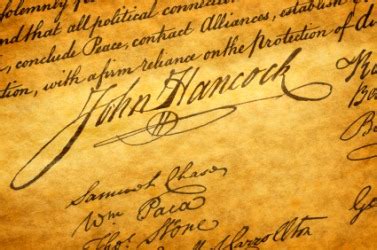 solemnly
and that all political connection
, conclude Peace, contract Alliances, establish
tion, with a firm reliance on the protection of di
John Hancock
Samuel Chase
Wm Paca
Thos Stone
Carrollton